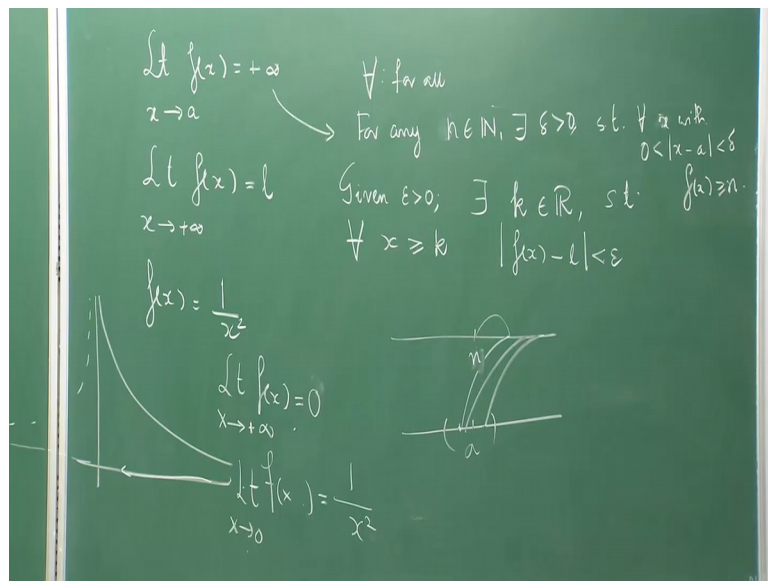 Lt f(x) = +∞
x→a
∀: for all
For any n∈ℕ, ∃ δ>0, s.t. ∀ x with
0<|x-a|<δ
f(x)≥n.
Lt f(x) = l
x→+∞
Given ε>0; ∃ k∈ℝ, s.t.
∀ x ≥ k |f(x)-l|<ε
f(x) = 1/x²
Lt f(x) = 0
x→+∞.
n
a
Lt f(x) = 1/x²
x→0